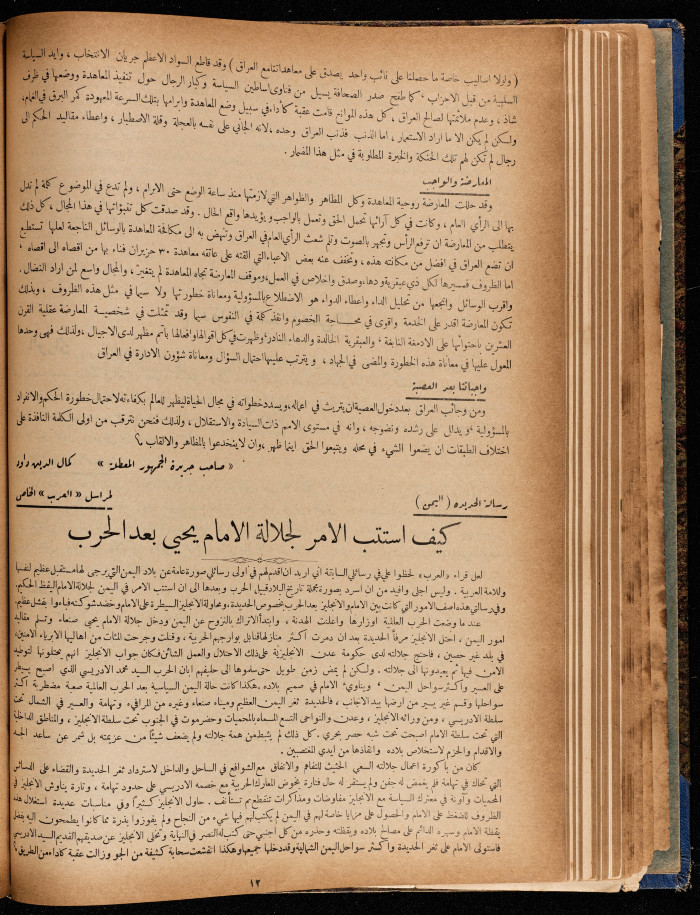 ( ولولا اساليب خاصة ما حصلنا على نائب واحد يصدق على معاهداتنا مع العراق ) وقد قاطع السواد الاعظم جريان الانتخاب ، وايد السياسة
السلبية من قبل الاحزاب ، كما طفح صدر الصحافة بسيل من فتاوى اساطين السياسة وكبار الرجال حول تنفيذ المعاهدة ووضعها في ظرف
شاذ ، وعدم ملائمتها لصالح العراق ، كل هذه الموانع قامت عقبة كأداء في سبيل وضع المعاهدة وابرامها بتلك السرعة المعهودة كمر البرق في الغمام ،
ولكن لم يكن الا ما اراد الاستعمار ، اما الذنب فذنب العراق وحده ، لانه الجاني على نفسه بالعجلة وقلة الاصطبار ، واعطاء مقاليد الحكم الى
رجال لم تكن لهم تلك الحنكة والخبرة المطلوبة في مثل هذا المضمار .
المعارضة والواجب
وقد حللت المعارضة روحية المعاهدة وكل المظاهر والظواهر التي لازمتها منذ ساعة الوضع حتى الابرام ، ولم تدع في الموضوع كلمة لم تدل
بها الى الرأي العام ، وكانت في كل آرائها تحمل الحق وتعمل بالواجب ويؤيدها واقع الحال . وقد صدقت كل تنبؤاتها في هذا المجال ، كل ذلك
يتطلب من المعارضة ان ترفع الرأس وتجهر بالصوت وتلم شعث الرأي العام في العراق وتنهض به الى مكافحة المعاهدة بالوسائل الناجعة لعلها تستطيع
ان تضع العراق في افضل من مكانته هذه ، وتخفف عنه بعض الاعباء التي القته على عاتقه معاهدة ٣٠ حزيران فناء بها من اقصاه الى اقصاه ،
اما الظروف فمسيرها لكل ذي عبقرية ودهاء وصدق واخلاص في العمل ، وموقف المعارضة تجاه المعاهدة لم يتغير ، والمجال واسع لمن اراد النضال .
واقرب الوسائل وانجعها من تحليل الداء واعطاء الدواء هو الاضطلاع بالمسؤولية ومعاناة خطورتها ولا سيما في مثل هذه الظروف ، وبذلك
تكون المعارضة اقدر على الخدمة واقوى في مجابهة الخصوم وانفذ كلمة في النفوس سيما وقد تمثلت في شخصية المعارضة عقلية القرن
العشرين باحتوائها على الادمغة النابغة ، والعبقرية الخالدة والدهاء النادر ، وظهرت في كل اقوالها وافعالها باتم مظهر لدى الاجيال ، ولذلك فهي وحدها
المعول عليها في معاناة هذه الخطورة والمضي في الجهاد ، ويترتب عليها احتمال السؤال ومعاناة شؤون الادارة في العراق
واجباتنا بعد العصبة
ومن وجائب العراق بعد دخول العصبة ان يتريث في اعماله ، ويسدد خطواته في مجال الحياة ليظهر للعالم بكفاءته لاحتمال خطورة الحكم والانفراد
بالمسؤولية ، ويدلل على رشده ونضوجه ، وانه في مستوى الامم ذات السيادة والاستقلال ، ولذلك فنحن نترقب من اولى الكلمة النافذة على
اختلاف الطبقات ان يضعوا الشيء في محله ويتبعوا الحق اينما ظهر ، وان لا ينخدعوا بالمظاهر والالقاب
« صاحب جريدة الجمهور المعطلة » كمال الدين داود
رسالة الحديده ( اليمن )
لمراسل « العرب » الخاص
كيف استتب الامر لجلالة الامام يحيى بعد الحرب
لعل قراء « العرب » لحظوا على في رسائلي السابقة اني اريد ان اقدم لهم في اولى رسائلي صورة عامة عن بلاد اليمن التي يرجى لها مستقبل عظيم لنفسها
وللامة العربية . وليس اجلى وافيد من ان اسرد بصورة مجملة تاريخ البلاد قبيل الحرب وبعدها الى ان استتب الامر في اليمن لجلالة الامام اليقظ الحكيم .
وفي رسالتي هذه اصف الامور التي كانت بين الامام والانجليز بعد الحرب بخصوص الحديدة ، ومحاولة الانجليز السيطرة على الامام وخضد شوكته فباءوا بفشل عظيم .
عندما وضعت الحرب العالمية اوزارها واعلنت الهدنة ، وابتدأ الاتراك بالنزوح عن اليمن ودخل جلالة الامام يحيى صنعاء وتسلم مقاليد
امور اليمن ، احتل الانجليز مرفأ الحديدة بعد ان دمرت اكثر منازلها قنابل بوارجهم الحربية ، وقتلت وجرحت المئات من اهاليها الابرياء الآمنين ،
في بلد غير حصين ، فاحتج جلالته لدى حكومة عدن الانجليزية على ذلك الاحتلال والعمل الشائن فكان جواب الانجليز انهم يحتلونها لتوطيد
الامن فيها ثم يعيدونها الى جلالته . ولكن لم يمض زمن طويل حتى سلموها الى حليفهم ابان الحرب السيد محمد الادريسي الذي اصبح يسيطر
على العسير واكثر سواحل اليمن ، ويناوىء الامام في صميم بلاده . هكذا كانت حالة اليمن السياسية بعد الحرب العالمية صعبة مضطربة اكثر
سواحلها وقسم غير يسير من ارضها بيد الاجانب ، فالحديدة ثغر اليمن العظيم وميناء صنعاء وغيره من المرافىء وتهامة والعسير في الشمال تحت
سلطة الادريسي ، ومن ورائه الانجليز ، وعدن والنواحي التسع المسماه بالمحميات وحضرموت في الجنوب تحت سلطة الانجليز ، والمناطق الداخلية
التي تحت سلطة الامام اصبحت تحت شبه حصر بحري . كل ذلك لم يثبط من همة جلالته ولم يضعف شيئاً من عزيمته بل شمر عن ساعد الجد
والاقدام والحزم لاستخلاص بلاده وانقاذها من ايدي المغتصبين .
كان من باكورة اعمال جلالته السعي الحثيث للتفاهم والاتفاق مع الشوافع في الساحل والداخل لاسترداد ثغر الحديدة والقضاء على الدسائس
التي تحاك في تهامة فلم يغمض له جفن ولم يستقر له حال فتارة بخوض المعارك الحربية مع خصمه الادريسي على حدود تهامة ، وتارة يناوش الانجليز في
المحميات وآونة في معترك السياسة مع الانجليز مفاوضات ومذاكرات تنقطع ثم تستأنف . حاول الانجليز كثيراً وفي مناسبات عديدة استغلال هذه
الظروف للضغط على الامام والحصول على مزايا خاصة لهم في اليمن لم يكتب لهم فيها شيء من النجاح ولم يفوزوا بذرة مما كانوا يطمحون اليه بفضل
يقظة الامام وسهره الدائم على مصالح بلاده ويقظته وحذره من كل اجنبي حتى كتب له النصر في النهاية وتخلى الانجليز عن صديقهم القديم السيد الادريسي
فاستولى الامام على ثغر الحديدة واكثر سواحل اليمن الشمالية وقد دخلها جميعها وهكذا انقشعت سحابة كثيفة من الجو وزالت عقبة كأداء من الطريق
١٢